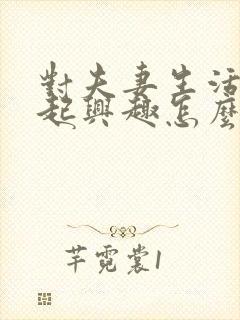 對夫妻生活
起興趣怎麼
芊霓裳1